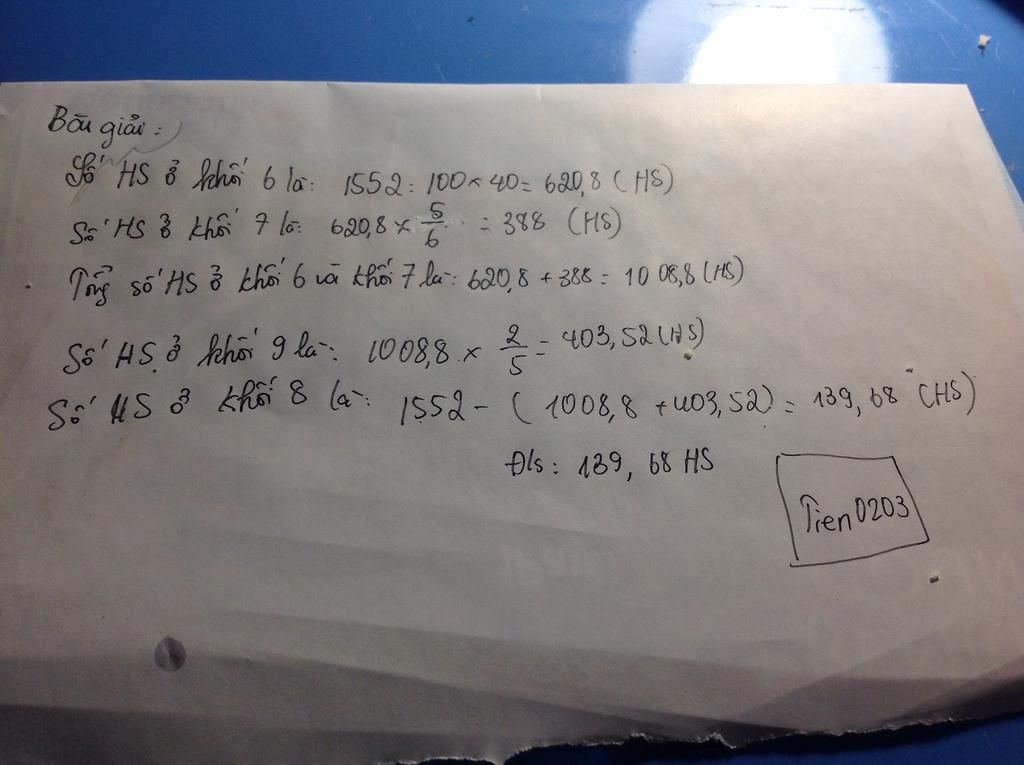 Bài giải:
Số HS ở khối 6 là: 1552 : 100 × 40 = 620,8 (HS)
Số HS ở khối 7 là: 620,8 × 5/6 = 388 (HS)
Tổng số HS ở khối 6 và khối 7 là: 620,8 + 388 = 1008,8 (HS)
Số HS ở khối 9 là: 1008,8 × 2/5 = 403,52 (HS)
Số HS ở khối 8 là: 1552 - (1008,8 + 403,52) = 139,68 (HS)
Đ/s: 139,68 HS
Tien0203